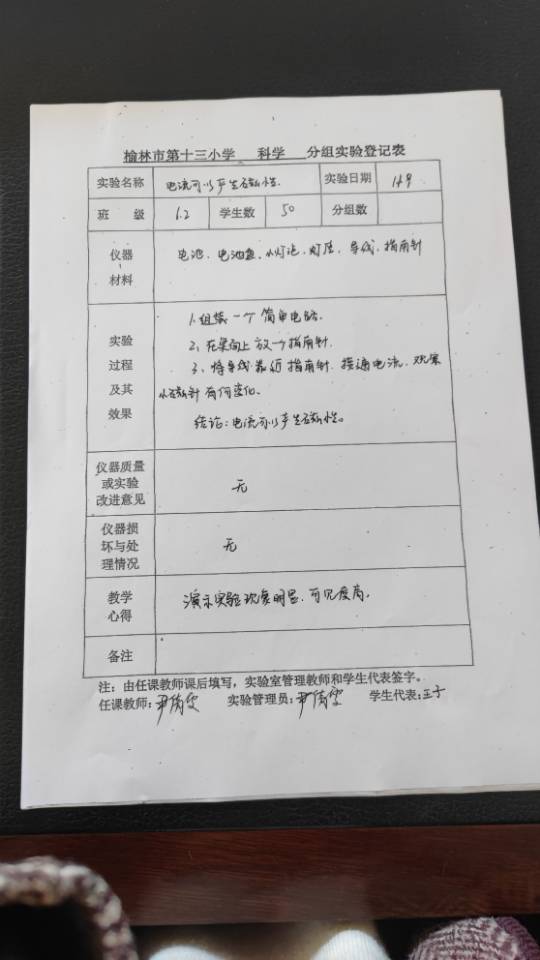 榆林市第十三小学 科学 分组实验登记表
实验名称 电流可以产生磁性. 实验日期
班 级 6.2 学生数 50 分组数
仪器 材料 电池、电池盒、小灯泡、灯座、导线、指南针
实验 过程 及其 效果
1、组装一个简单电路.
2、在桌面上放一个指南针.
3、将导线靠近指南针.接通电流.观察
小磁针有何变化.
结论:电流可以产生磁性。
仪器质量
或实验
改进意见 无
仪器损
坏与处
理情况 无
教学
心得 演示实验现象明显.可见度高.
备注
注:由任课教师课后填写,实验室管理教师和学生代表签字。
任课教师: 实验管理员: 学生代表: